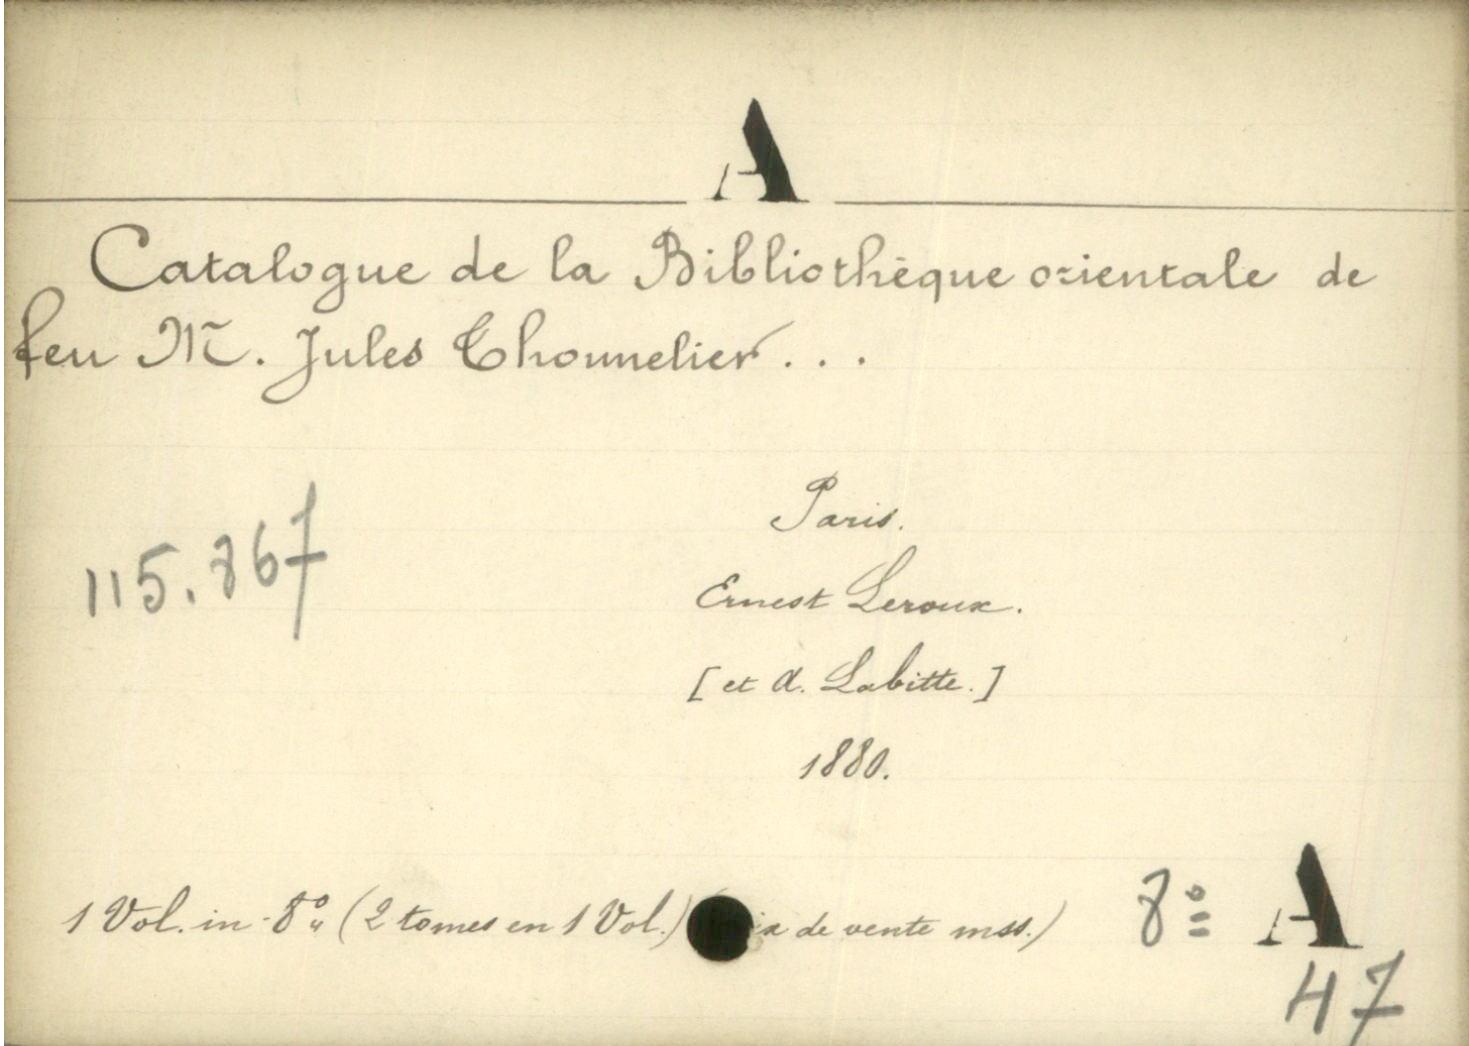 A
Catalogue de la Bibliothèque orientale de
feu Mr. Jules Thonnelier...
Paris.
115.867
Ernest Leroux.
[et A. Labitte.]
1880.
1 Vol. in-8º (2 tomes en 1 Vol.) de vente mss.)
8º A
47